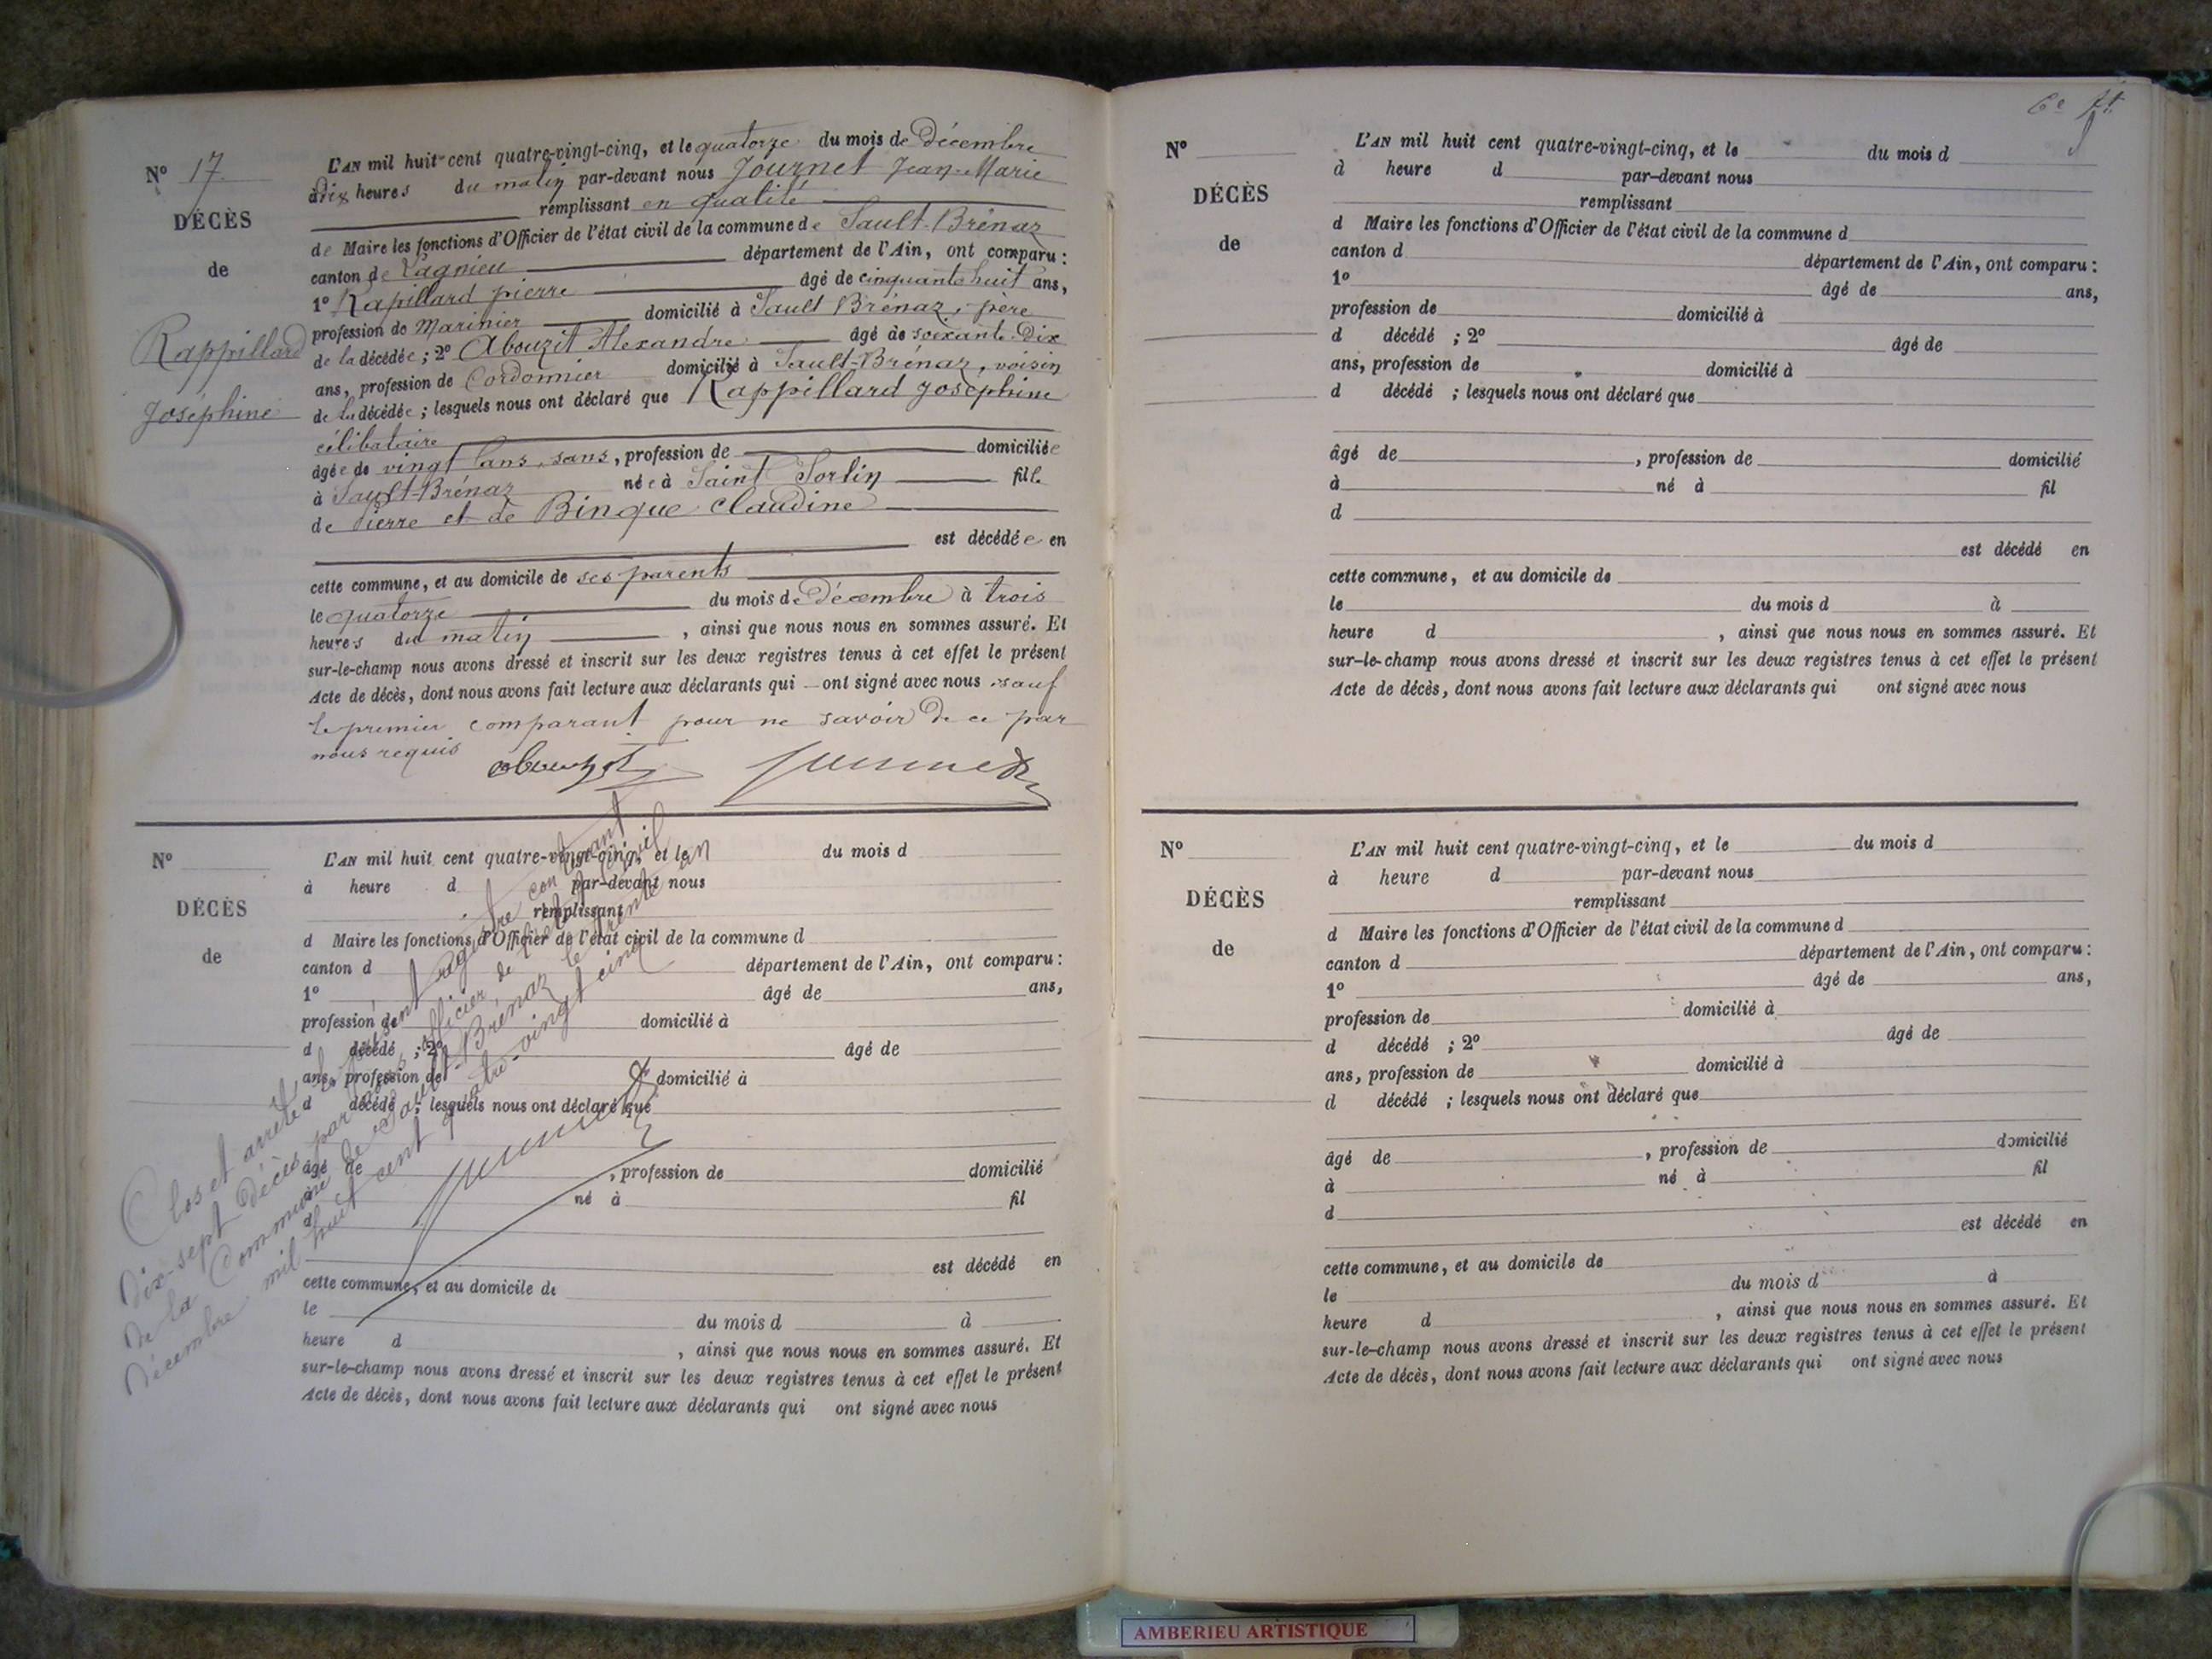 N° 17
DÉCÈS
de
Rappillard
Joséphine
L'AN mil huit cent quatre-vingt-cinq, et le quatorze du mois de Décembre
à dix heures du matin par-devant nous Journet Jean-Marie
remplissant en qualité
de Maire les fonctions d'Officier de l'état civil de la commune de Sault-Brénaz
canton de Lagnieu département de l'Ain, ont comparu :
1° Rapillard pierre âgé de cinquante huit ans,
profession de Marinier domicilié à Sault Brénaz, père
de la décédée ; 2° Abouzit Alexandre âgé de soixante Dix
ans, profession de Cordonnier domicilié à Sault-Brénaz, voisin
de la décédée ; lesquels nous ont déclaré que Rappillard Joséphine
célibataire
âgée de vingt ans, sans, profession de domiciliée
à Sault-Brénaz née à Saint Sorlin fille
de Pierre et de Binque Claudine
est décédée en
cette commune, et au domicile de ses parents
le quatorze du mois de Décembre à trois
heures du matin , ainsi que nous nous en sommes assuré. Et
sur-le-champ nous avons dressé et inscrit sur les deux registres tenus à cet effet le présent
Acte de décès, dont nous avons fait lecture aux déclarants qui ont signé avec nous sauf
le premier comparant pour ne savoir De ce par
nous requis
Abouzit Journet
N°
DÉCÈS
de
L'AN mil huit cent quatre-vingt-cinq, et le du mois d
à heure d par-devant nous
remplissant
d Maire les fonctions d'Officier de l'état civil de la commune d
canton d département de l'Ain, ont comparu :
1° âgé de ans,
profession de domicilié à
d décédé ; 2° âgé de
ans, profession de domicilié à
d décédé ; lesquels nous ont déclaré que
âgé de , profession de domicilié
à né à fil
d
est décédé en
cette commune, et au domicile de
le du mois d à
heure d , ainsi que nous nous en sommes assuré. Et
sur-le-champ nous avons dressé et inscrit sur les deux registres tenus à cet effet le présent
Acte de décès, dont nous avons fait lecture aux déclarants qui ont signé avec nous
Clos et arrêté le présent registre contenant
Dix-sept Décès par nous officier de l'état civil
De la Commune de Sault-Brénaz le trente un
Décembre mil huit cent quatre-vingt cinq
Journet
6e ft
N°
DÉCÈS
de
L'AN mil huit cent quatre-vingt-cinq, et le du mois d
à heure d par-devant nous
remplissant
d Maire les fonctions d'Officier de l'état civil de la commune d
canton d département de l'Ain, ont comparu :
1° âgé de ans,
profession de domicilié à
d décédé ; 2° âgé de
ans, profession de domicilié à
d décédé ; lesquels nous ont déclaré que
âgé de , profession de domicilié
à né à fil
d
est décédé en
cette commune, et au domicile de
le du mois d à
heure d , ainsi que nous nous en sommes assuré. Et
sur-le-champ nous avons dressé et inscrit sur les deux registres tenus à cet effet le présent
Acte de décès, dont nous avons fait lecture aux déclarants qui ont signé avec nous
N°
DÉCÈS
de
L'AN mil huit cent quatre-vingt-cinq, et le du mois d
à heure d par-devant nous
remplissant
d Maire les fonctions d'Officier de l'état civil de la commune d
canton d département de l'Ain, ont comparu :
1° âgé de ans,
profession de domicilié à
d décédé ; 2° âgé de
ans, profession de domicilié à
d décédé ; lesquels nous ont déclaré que
âgé de , profession de domicilié
à né à fil
d
est décédé en
cette commune, et au domicile de
le du mois d à
heure d , ainsi que nous nous en sommes assuré. Et
sur-le-champ nous avons dressé et inscrit sur les deux registres tenus à cet effet le présent
Acte de décès, dont nous avons fait lecture aux déclarants qui ont signé avec nous
AMBERIEU ARTISTIQUE